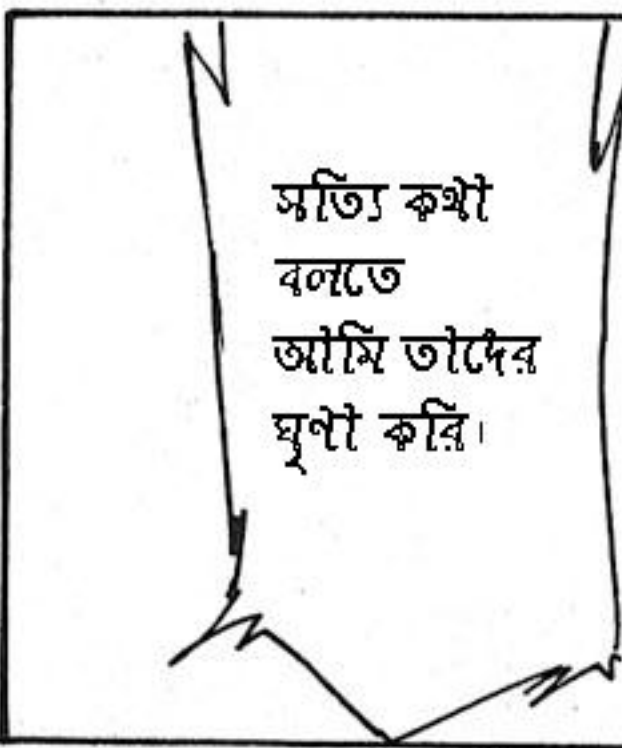 সত্যি কথা
বলতে
আমি তাদের
ঘৃণা করি।